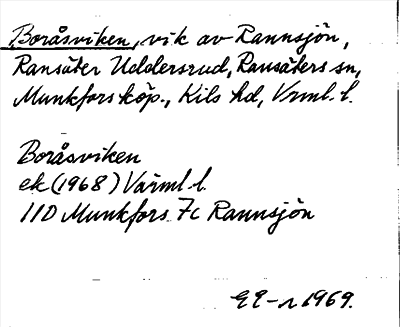 Boråsviken, vik av Rannsjön,
Ransäter Uddersrud, Ransäters sn,
Munkfors köp., Kils hd, Vrml. l.
Boråsviken
ek (1968) Värml. l.
11D Munkfors 7c Rannsjön
1969.